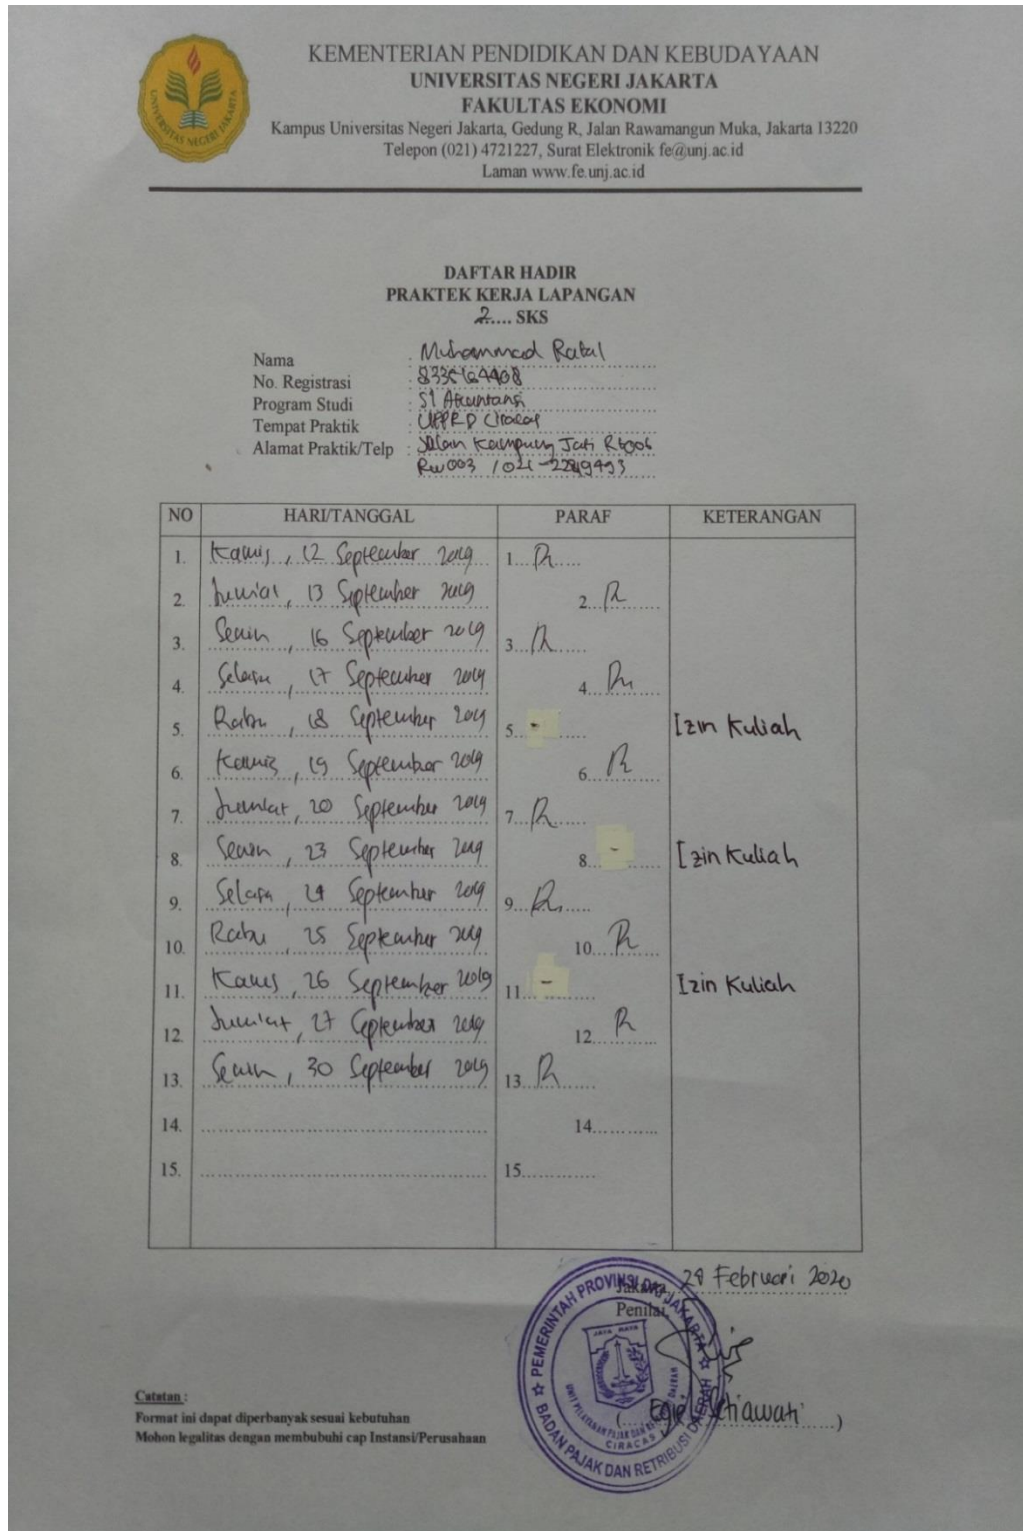 KEMENTERIAN PENDIDIKAN DAN KEBUDAYAAN
UNIVERSITAS NEGERI JAKARTA
FAKULTAS EKONOMI
Kampus Universitas Negeri Jakarta, Gedung R, Jalan Rawamangun Muka, Jakarta 13220
Telepon (021) 4721227, Surat Elektronik fe@unj.ac.id
Laman www.fe.unj.ac.id
UNIVERSITAS NEGERI JAKARTA
DAFTAR HADIR
PRAKTEK KERJA LAPANGAN
2.... SKS
Nama : Muhammad
No. Registrasi : 8335164408
Program Studi : S1 Akuntansi
Tempat Praktik : UPPRD Ciracas
Alamat Praktik/Telp : Jalan Kampung Jati Rt006
Rw003 / 021-
NO HARI/TANGGAL PARAF KETERANGAN
1. Kamis, 12 September 2019 1.
2. Jum'at, 13 September 2019 2.
3. Senin, 16 September 2019 3.
4. Selasa, 17 September 2019 4.
5. Rabu, 18 September 2019 5. - Izin Kuliah
6. Kamis, 19 September 2019 6.
7. Jum'at, 20 September 2019 7.
8. Senin, 23 September 2019 8. - Izin Kuliah
9. Selasa, 24 September 2019 9.
10. Rabu, 25 September 2019 10.
11. Kamis, 26 September 2019 11. - Izin Kuliah
12. Jum'at, 27 September 2019 12.
13. Senin, 30 September 2019 13.
14. 14.
15. 15.
Jakarta, 28 Februari 2020
Penilai,
PEMERINTAH PROVINSI DKI JAKARTA
BADAN PAJAK DAN RETRIBUSI DAERAH
JAYA RAYA
UNIT PELAYANAN PAJAK DAN RETRIBUSI DAERAH
CIRACAS
( Setiawati )
Catatan :
Format ini dapat diperbanyak sesuai kebutuhan
Mohon legalitas dengan membubuhi cap Instansi/Perusahaan